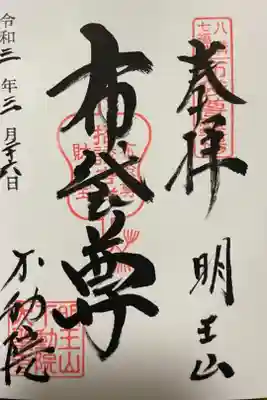 奉拝
明王山
布袋尊
令和三年三月十六日
不動院
明王山
不動院